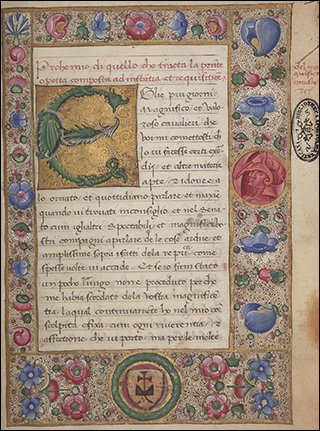 Prohemio di quello che tracta la pnte
opetta composta ad instātia et requisitiōe
Olte piu giorni
Magnifico et valo
roso cavalieri che
voi mi comettesti ch
Io vi ficesse certi exor
dii et altre materie
apte et idonee a
lo ornato et quottidiano parlare et maxīe
quando vi trovati in consiglio et nel Sena
to cum iglialtri Spectabili et magnifici vo
stri compagni a parlare de le cose ardue et
amplissime sopra i fatti de la re pu come
spesse volte vi accade Et se io sum stato
un pocho lungo non e proceduto perche
me habia scordato de la vostra magnifice
tia laqual continuamēte ho nel mio core
scolpita et fixa cum ogni riverentia et
affectione che vi porto ma per le molte